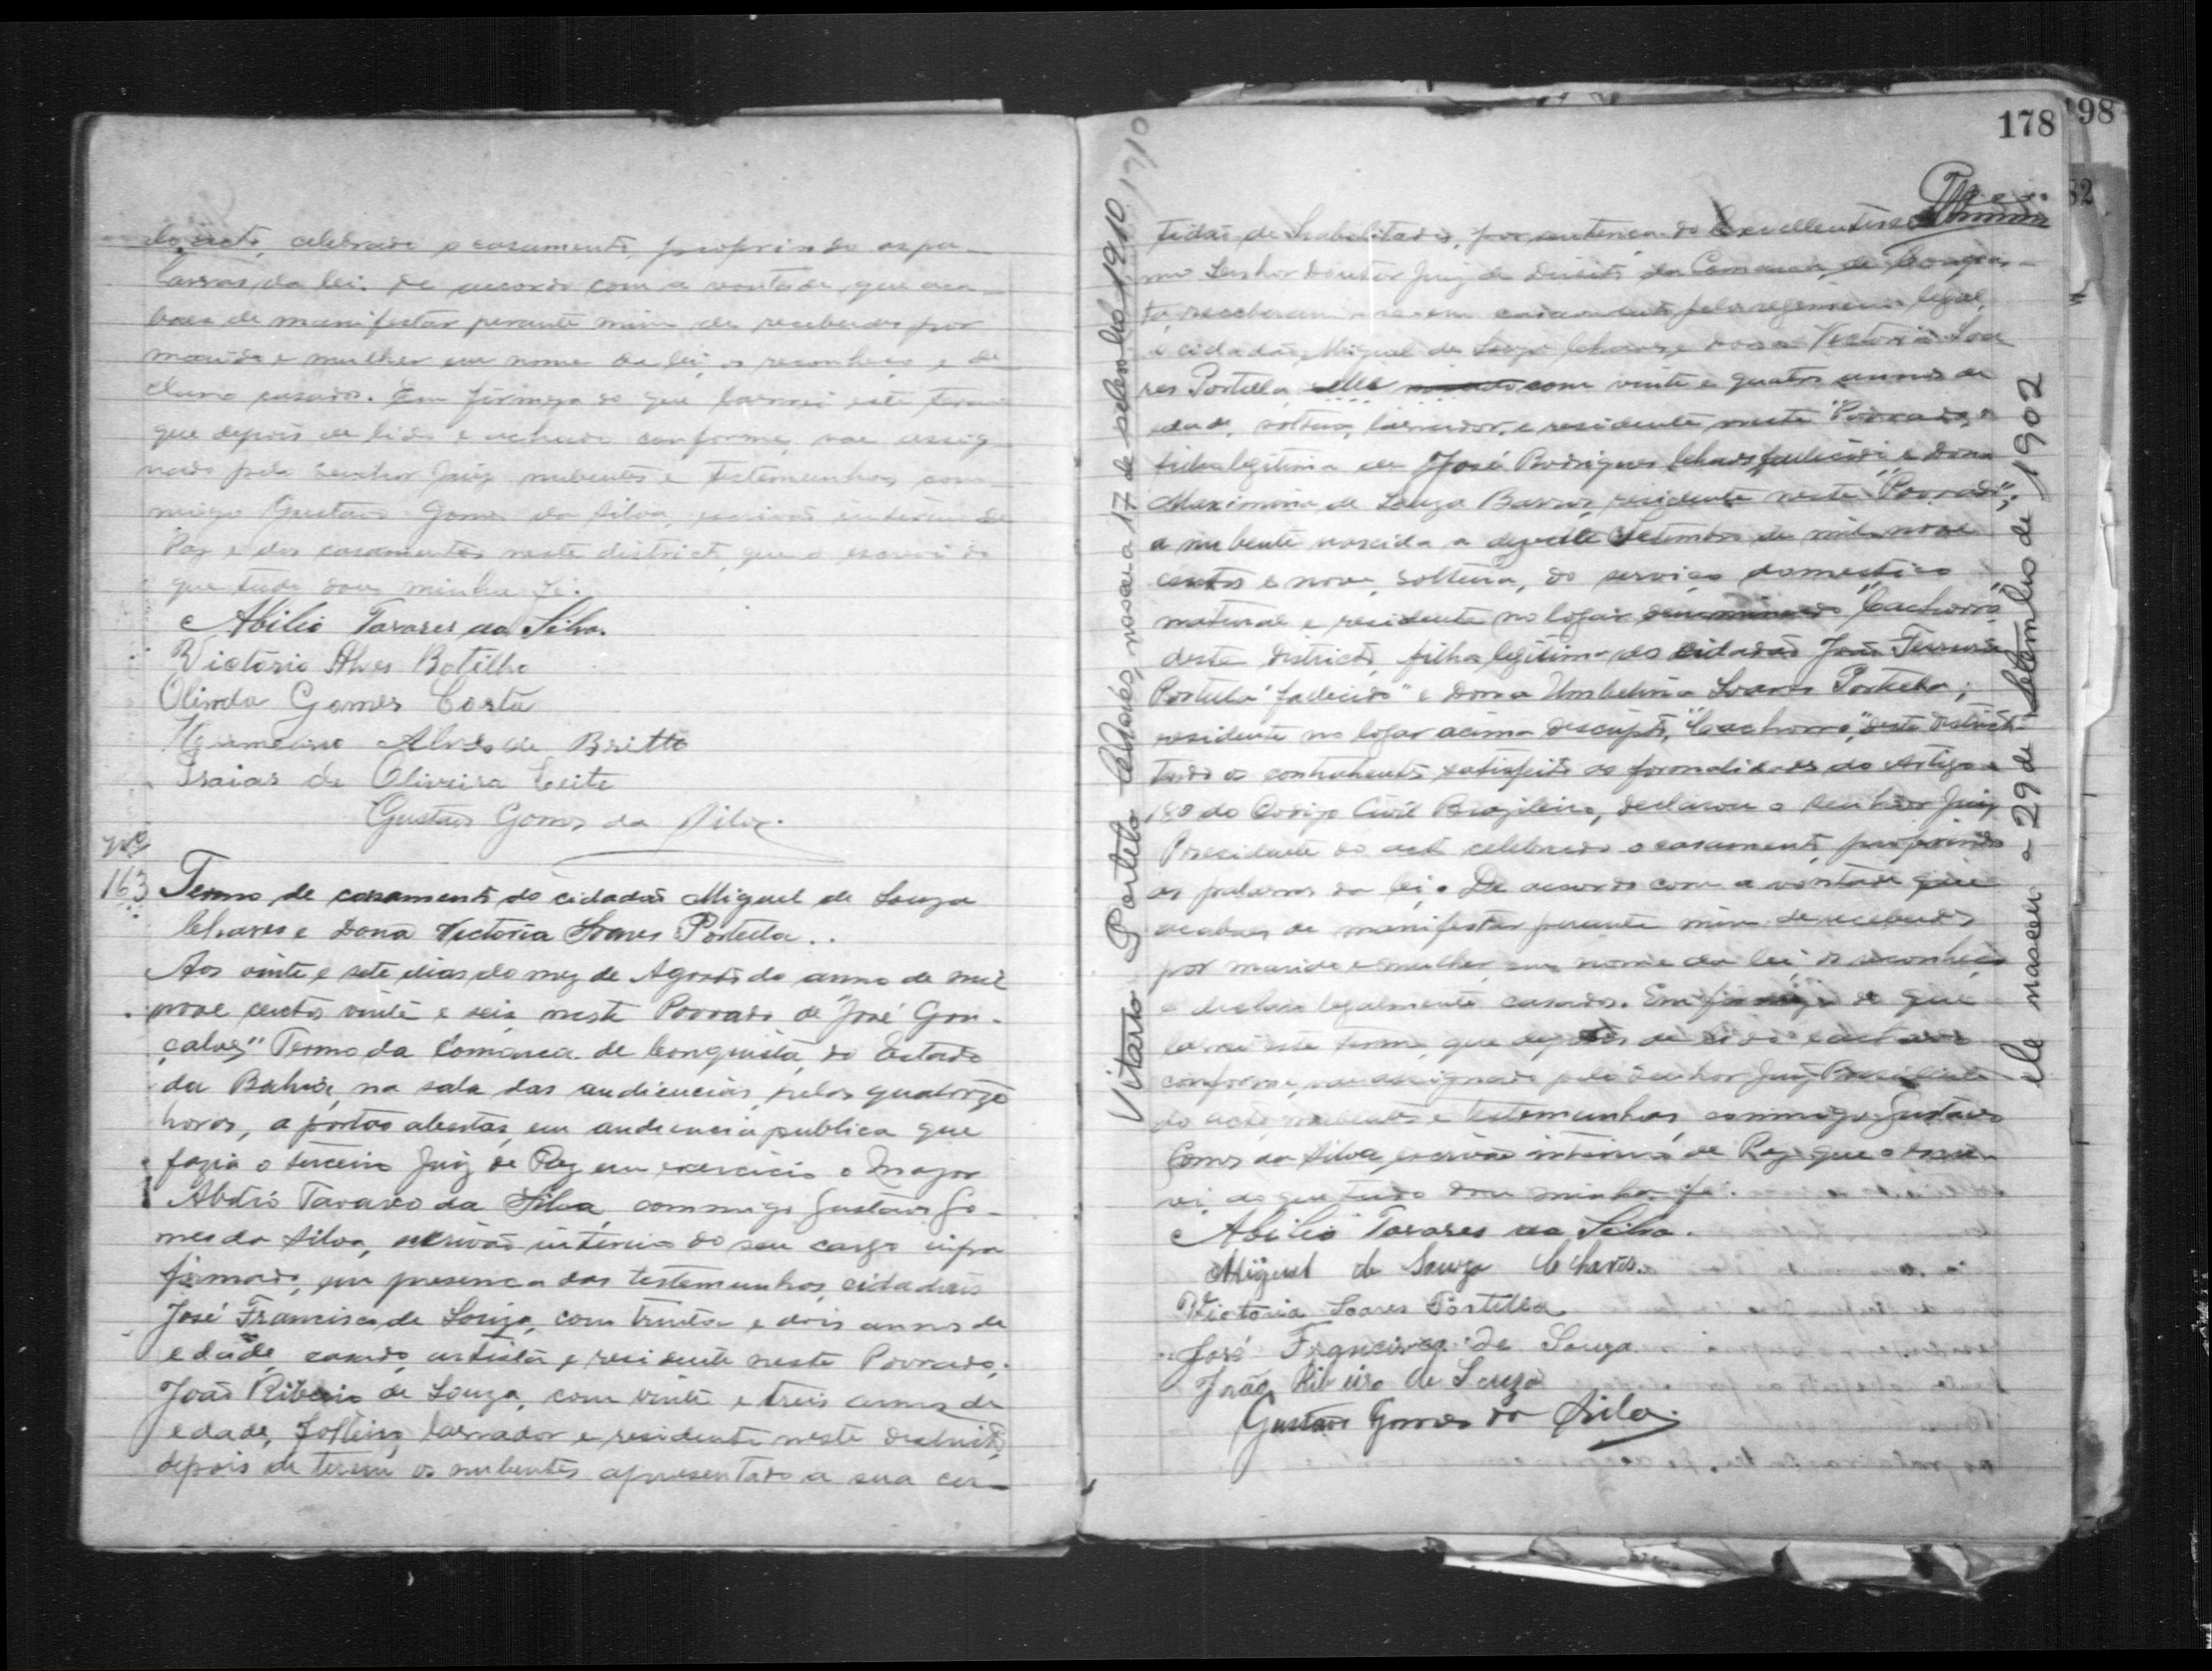 do acto, celebrado o casamento, proferindo as pa-
lavras da lei: De accordo com a vontade que aca-
baes de manifestar perante mim de receberdes por
marido e mulher em nome da lei, os reconheço e de
claro casados. Em firmeza do que lavrei este termo
que depois de lido e achado conforme, vae assig
nado pelo Senhor Juiz nubentes e testemunhas com-
migo Gustavo Gomes da Silva, escrivão interino de
Paz e dos casamentos neste districto, que o escrevi do
que tudo dou minha fé.
Abilio Tavares da Silva.
Victorio Alves Botilho
Olinda Gomes Costa
Alves de Britto
Isaias de Oliveira Leite
Gustavo Gomes da Silva.
Nº
163
Termo de casamento do cidadão Miguel de Souza
Chaves e Dona Victoria Soares Portella..
Aos vinte e sete dias do mez de Agosto do anno de mil
nove centos vinte e seis neste Povoado de "José Gon-
çalves" Termo da Comarca de Conquista, do Estado
da Bahia, na sala das audiencias, pelas quatorze
horas, a portas abertas, em audiencia publica que
fazia o terceiro Juiz de Paz em exercicio o Major
Abilio Tavares da Silva, commigo Gustavo Go-
mes da Silva, escrivão interino do seu cargo infra
firmado, em presença das testemunhas, cidadãos
José Francisco de Souza, com trinta e dois annos de
edade, casado, artista, e residente neste Povoado;
João Ribeiro de Souza, com vinte e treis annos de
edade, solteiro, lavrador e residente neste districto,
depois de terem os nubentes apresentado a sua cer-
178
198
82
tidão de habilitados, por sentença do Excellentissi
mo Senhor Doutor Juiz de Direito da Comarca de Conquis-
ta, receberam-se em casamento pelo regimen legal,
o cidadão Miguel de Souza Chaves e Dona Victoria Soa
res Portella elle com vinte e quatro annos de
edade, solteiro, lavrador, e residente neste "Povoado,"
filho legitimo de José Rodrigues Chaves fallecido e Dona
Maximina de Souza Barros, residente neste "Povoado";
a nubente nascida a dezesete Setembro de mil nove
centos e nove, solteira, do serviço domestico
natural e residente no logar denominado "Cachorro"
deste districto, filha legitima do cidadão João Ferreira
Portella "fallecido" e Dona Umbelina Soares Portella;
residente no logar acima descripto, "Cachorro," deste district.
Tendo os contrahentes satisfeito as formalidades do Artigo
180 do Codigo Civil Brazileiro, declarou o Senhor Juiz
Presidente do acto celebrado o casamento, proferindo
as palavras da lei. De accordo com a vontade que
acabaes de manifestar perante mim de receberdes
por marido e mulher, em nome da lei, os reconheço
e declaro legalmente casados. Em firmeza do que
lavrei este termo, que depois de lido e achado
conforme, vae assignado pelo Senhor Juiz Presidente
do acto, nubentes e testemunhas, commigo Gustavo
Gomes da Silva escrivão interino de Paz que o escre-
vi, do que tudo dou minha fé.
Abilio Tavares da Silva.
Miguel de Souza Chaves.
Victoria Soares Portella
José Francisco de Souza
João Ribeiro de Souza
Gustavo Gomes da Silva.
Portela Chaves, nasceu a 17 de setembro 1910 17/10
ele nasceu a 29 de Setembro de 1902